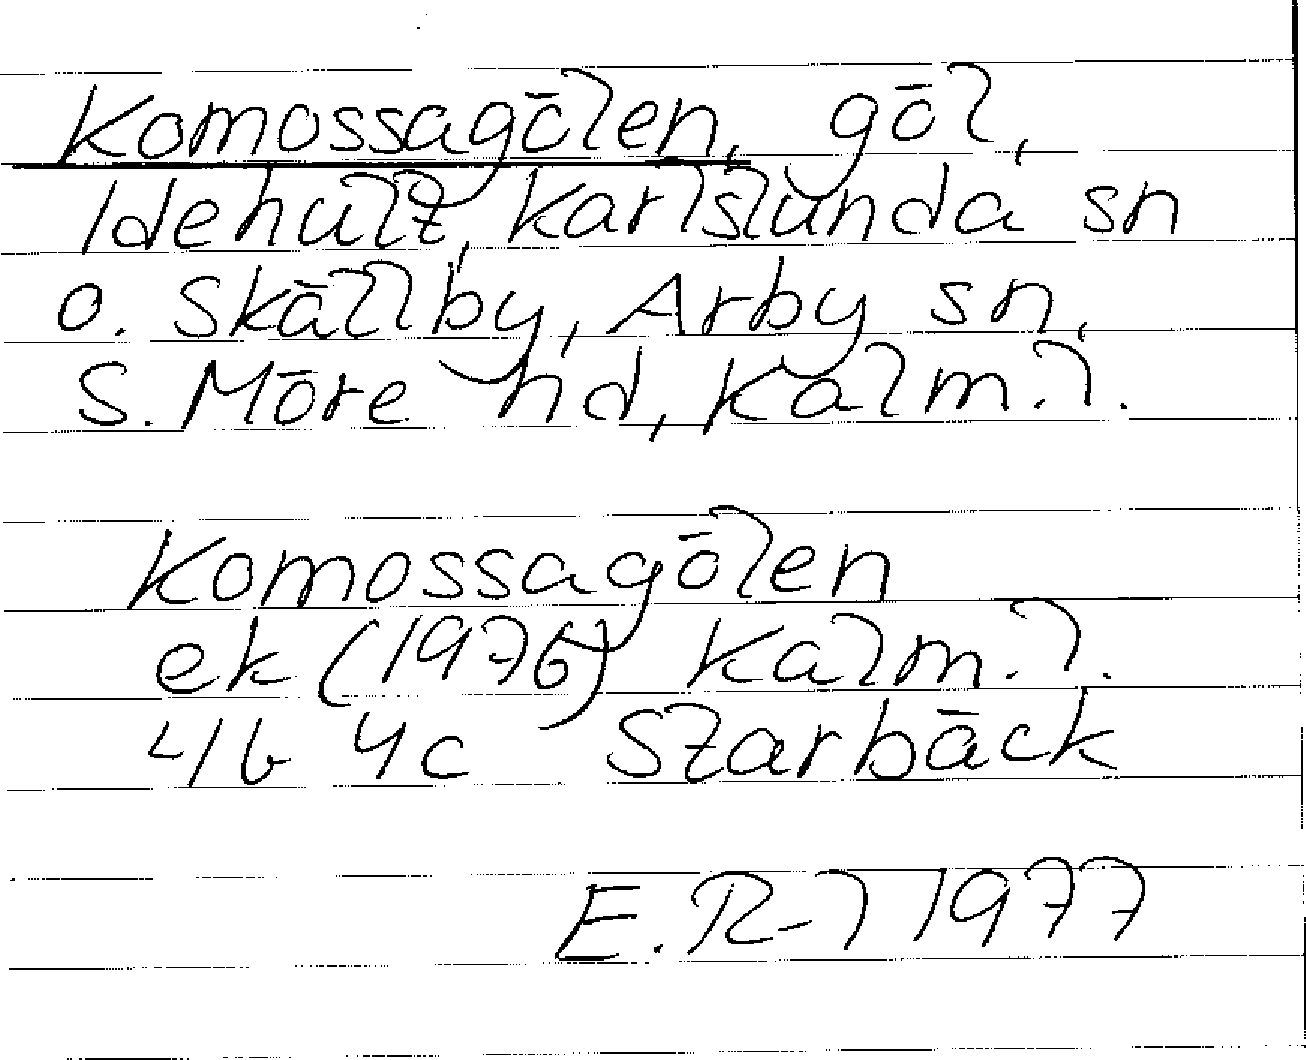 Komossagölen, göl,
Idehult, Karlslunda sn
o. Skällby, Arby sn,
S. Möre hd, Kalm. l.
Komossagölen
ek (1976) Kalm. l.
4/6 4c Starbäck
E. R-l 1977